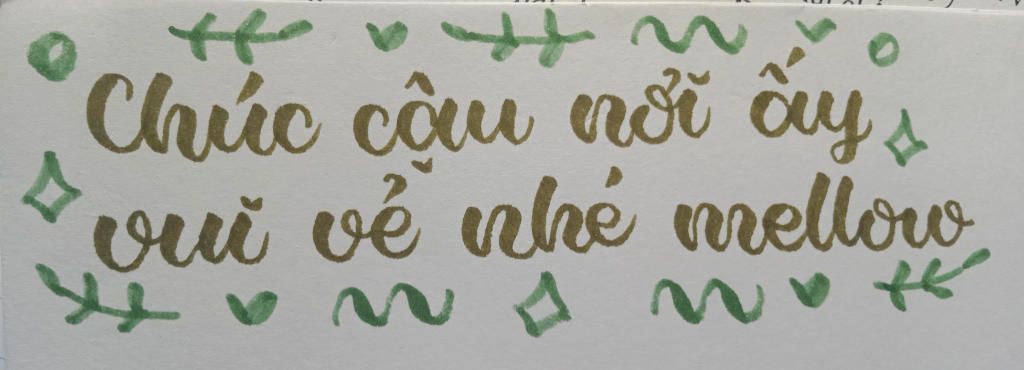 Chúc cậu nơi ấy
vui vẻ nhé mellow